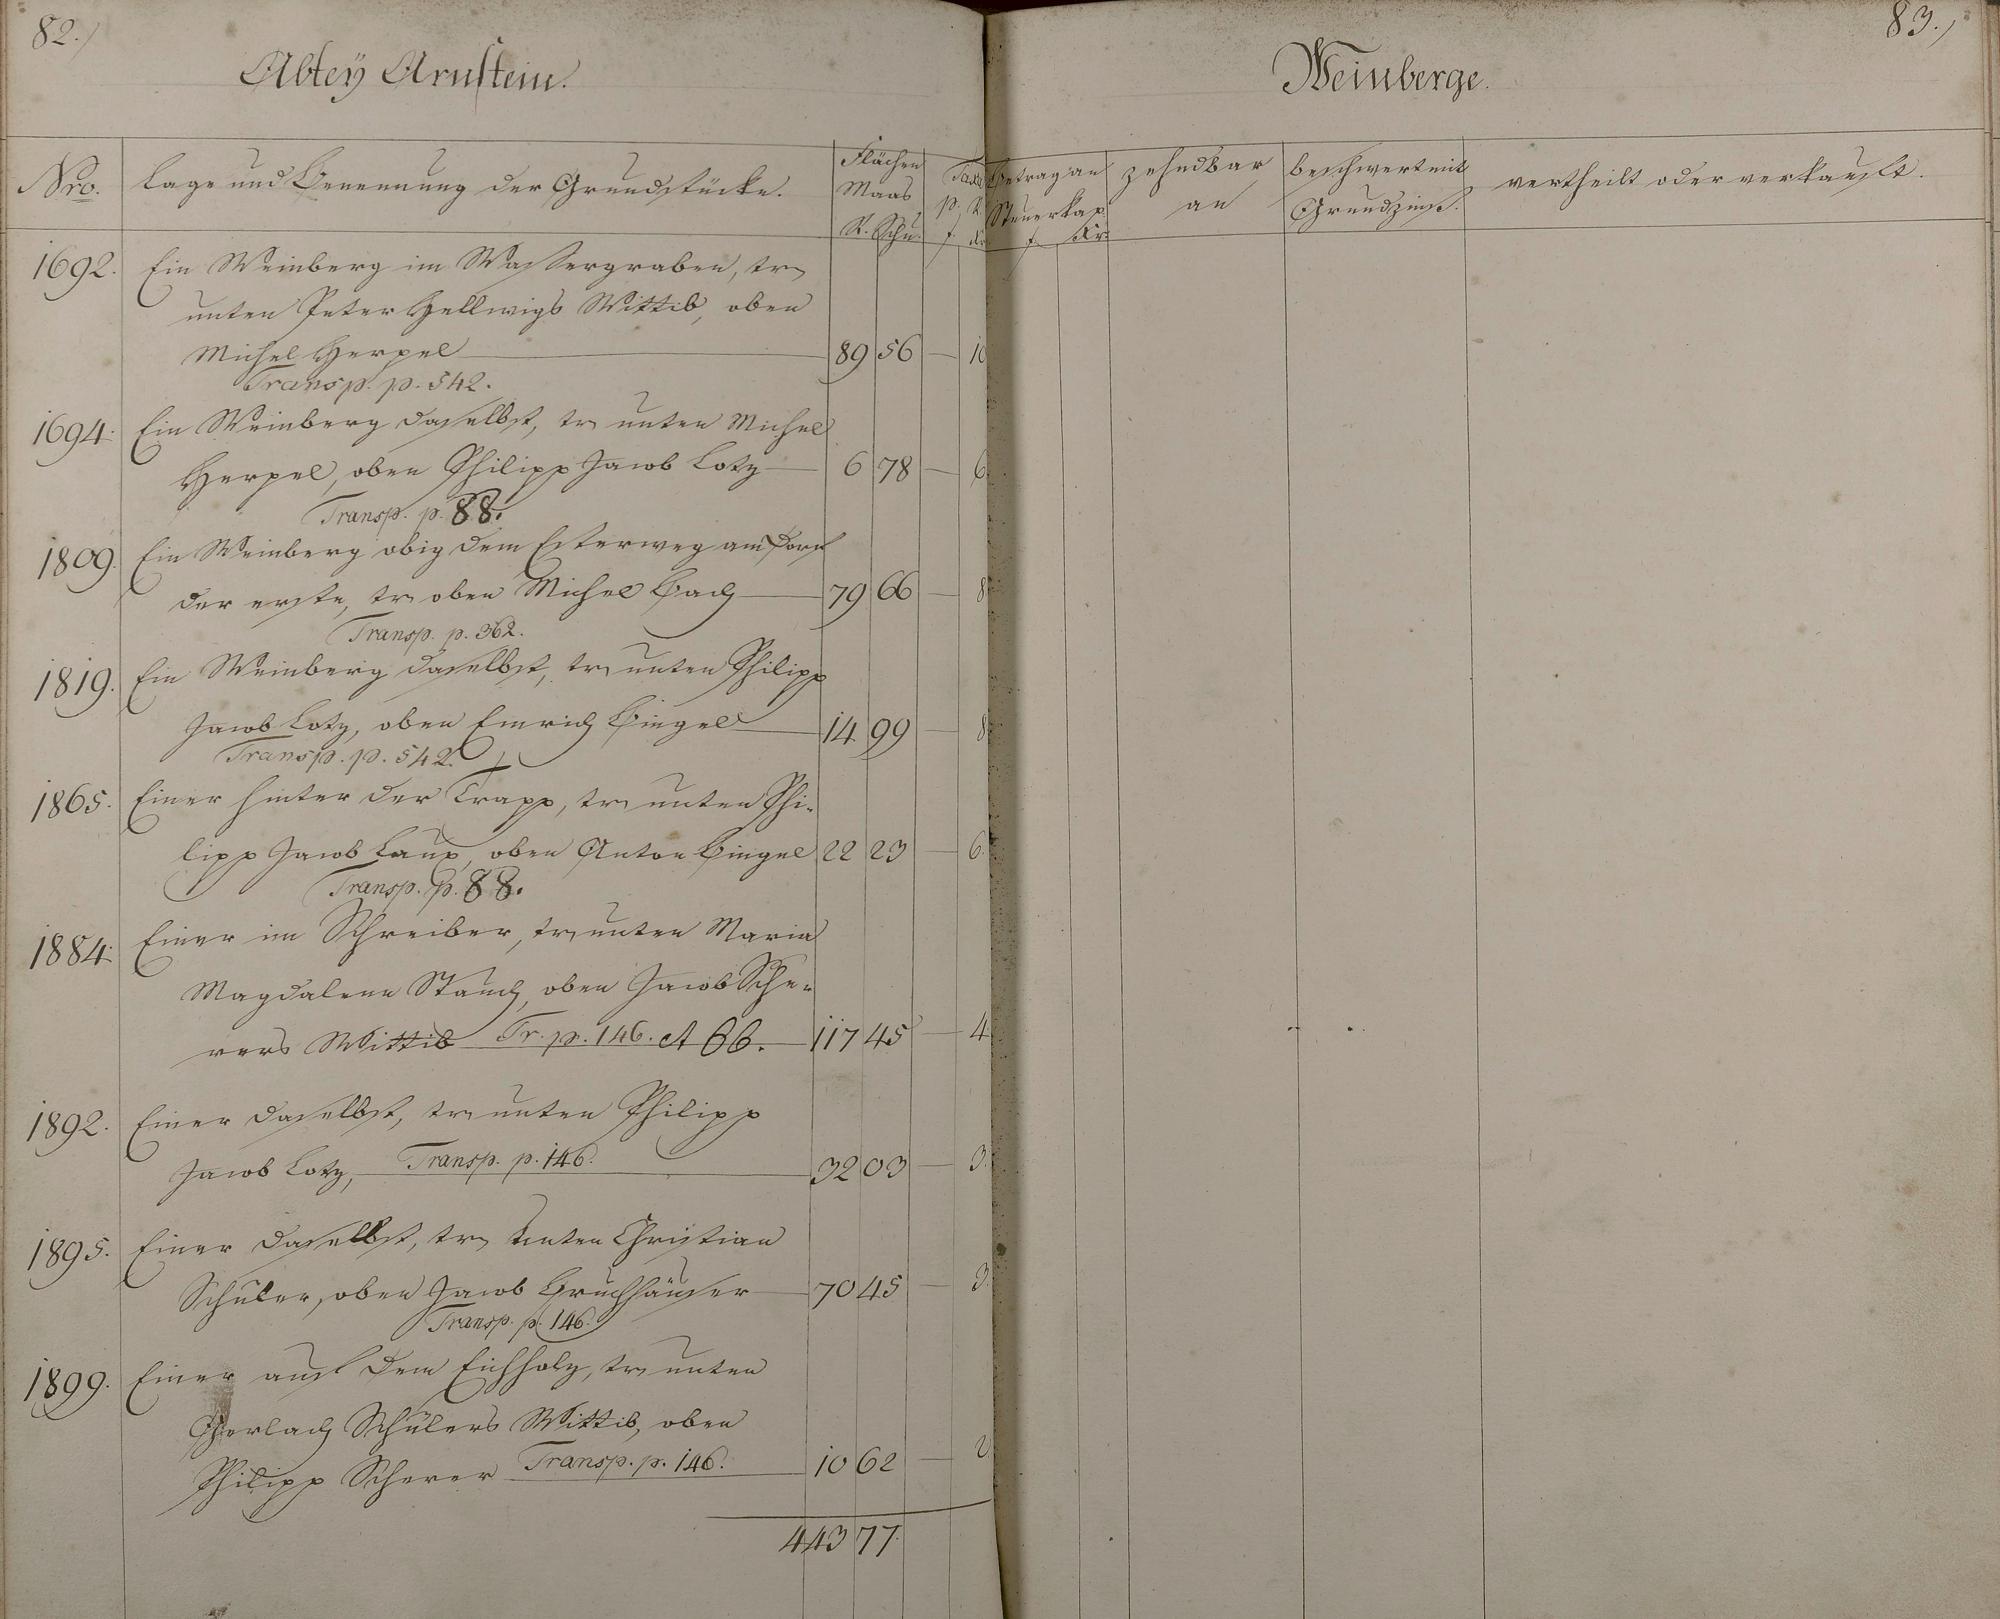 82.
Abtey Arnstein.
Nro.
Lage und Benennung der Grundstücke.
Flächen
Maas
R. Schu.
Taxa
p. R.
f. Kr.
1692. Ein Weinberg im Wassergraben, tr
unten Peter Hellwigs Wittib, oben
Michel Herpel 89 56 — 10
Transp. p. 542.
1694. Ein Weinberg daselbst, tr unten Michel
Herpel, oben Philipp Jacob Lotz 6 78 — 6.
Transp. p. 88.
1809. Ein Weinberg obig dem Esterweg am Dorf
der erste, tr oben Michel Bach 79 66 — 8
Transp. p. 362.
1819. Ein Weinberg daselbst, tr unten Philipp
Jacob Lotz, oben Emrich Bingel 14 99 — 8
Transp. p. 542.
1865. Einer hinter der Trapp, tr unten Phi-
lipp Jacob Laux, oben Anton Bingel 22 23 — 6.
Transp. p. 88.
1884. Einer im Schreiber, tr unten Maria
Magdalena Stauch, oben Jacob Sche-
rers Wittib Tr. p. 146. et 66. 117 45 — 4
1892. Einer daselbst, tr unten Philipp
Jacob Lotz, Transp. p. 146. 32 03 — 3.
1895. Einer daselbst, tr unten Christian
Schüler, oben Jacob Bruchhäuser 70 45 — 3.
Transp. p. 146.
1899. Einer auf dem Eichholz, tr unten
Gerlach Schülers Wittib, oben
Philipp Scherer Transp. p. 146. 10 62 — 2
443 77.
83.
Weinberge.
Betrag an
Steuerkap.
f. Kr.
zehndbar
an
beschwert mit
Grundzins.
vertheilt oder verkauft.